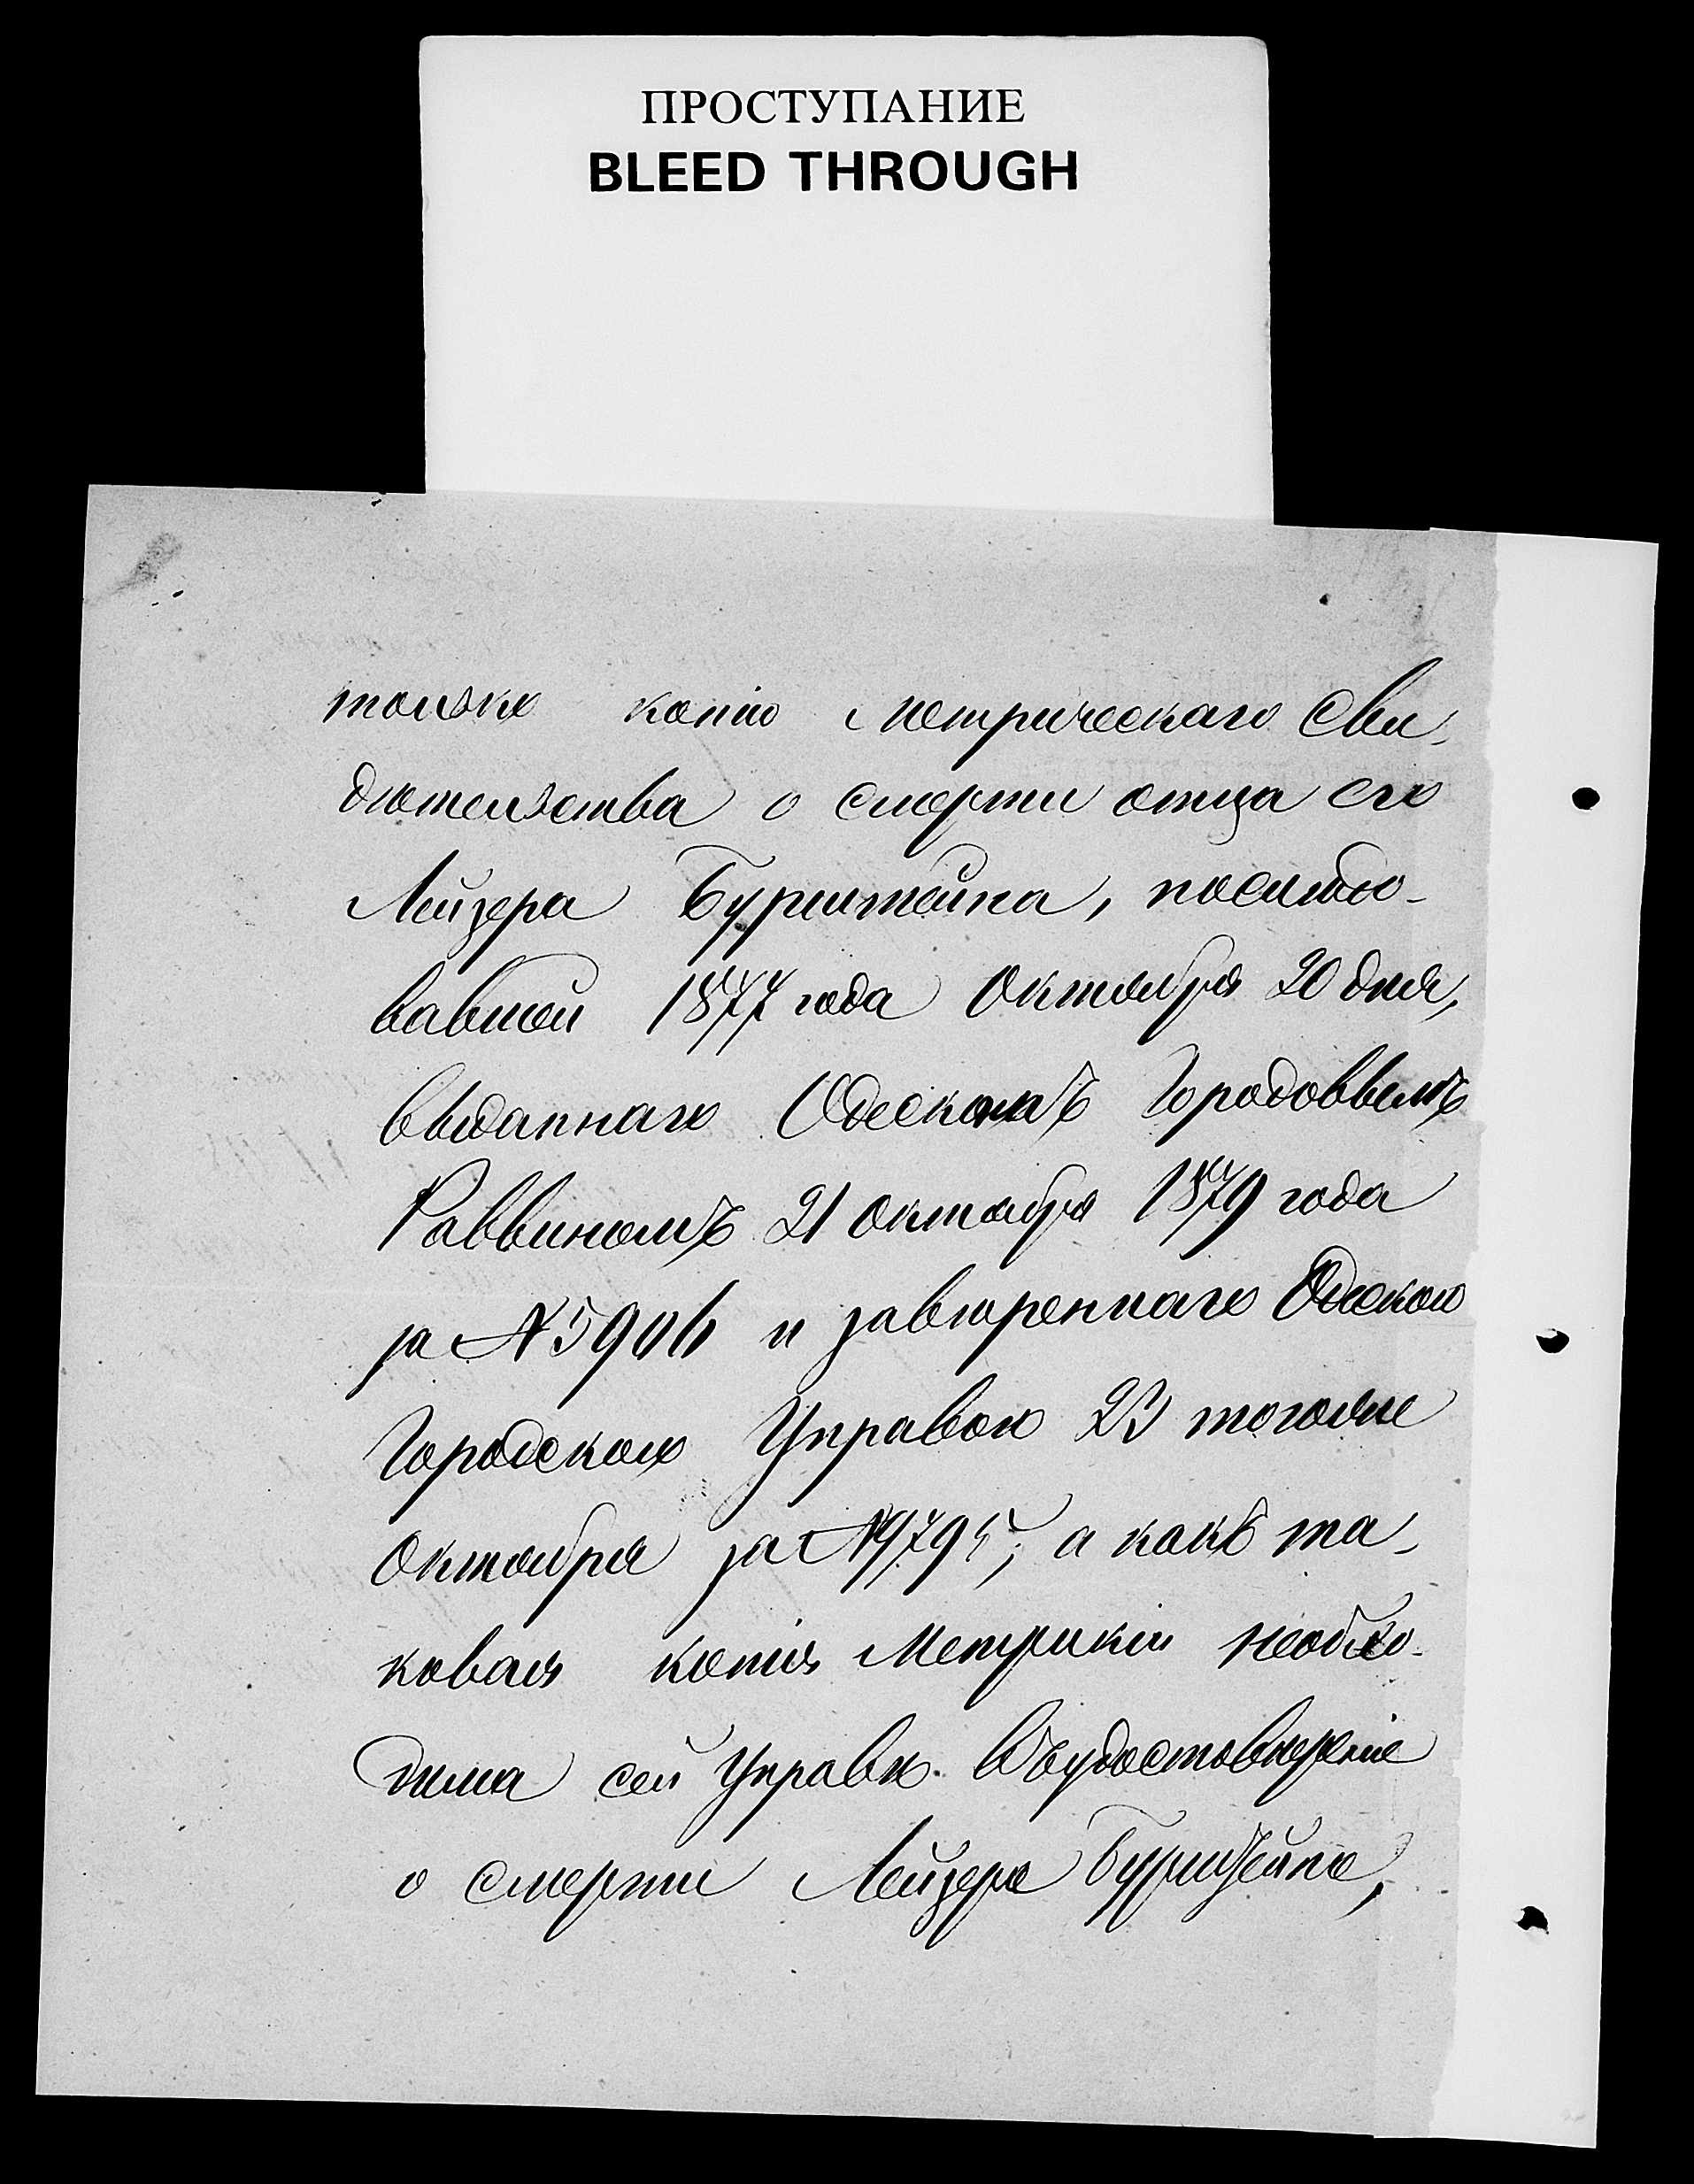 ПРОСТУПАНИЕ
BLEED THROUGH
только копію метрическаго сви-
дѣтельства о смерти отца его
Лейзера Бурштейна, послѣдо-
вавшей 1877 года Октября 20 дня,
выданнаго Одескимъ Городовымъ
Раввиномъ 21 Октября 1879 года
за № 5906 и завѣреннаго Одеской
Городской Управою 23 тогоже
Октября за № 9795, а какъ та-
ковая копія Метрикіи необхо-
дима сей Управѣ въ удостовѣреніе
о смерти Лейзера Бурштейна,